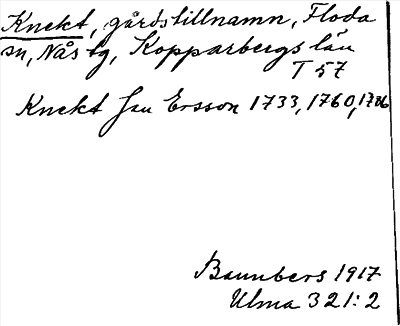 Knekt, gårdstillnamn, Floda
sn, Nås tg, Kopparbergs län
T 57
Knekt Jan Ersson 1733, 1760, 1786
Bannbers 1917
Ulma 321:2